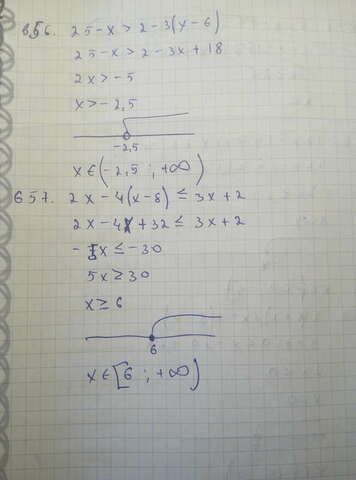 856. 25-x > 2-3(x-6)
25-x > 2-3x+18
2x > -5
x > -2,5
-2,5
x ∈ (-2,5 ; +∞)
857. 2x-4(x-8) ≤ 3x+2
2x-4x+32 ≤ 3x+2
-5x ≤ -30
5x ≥ 30
x ≥ 6
6
x ∈ [6 ; +∞)